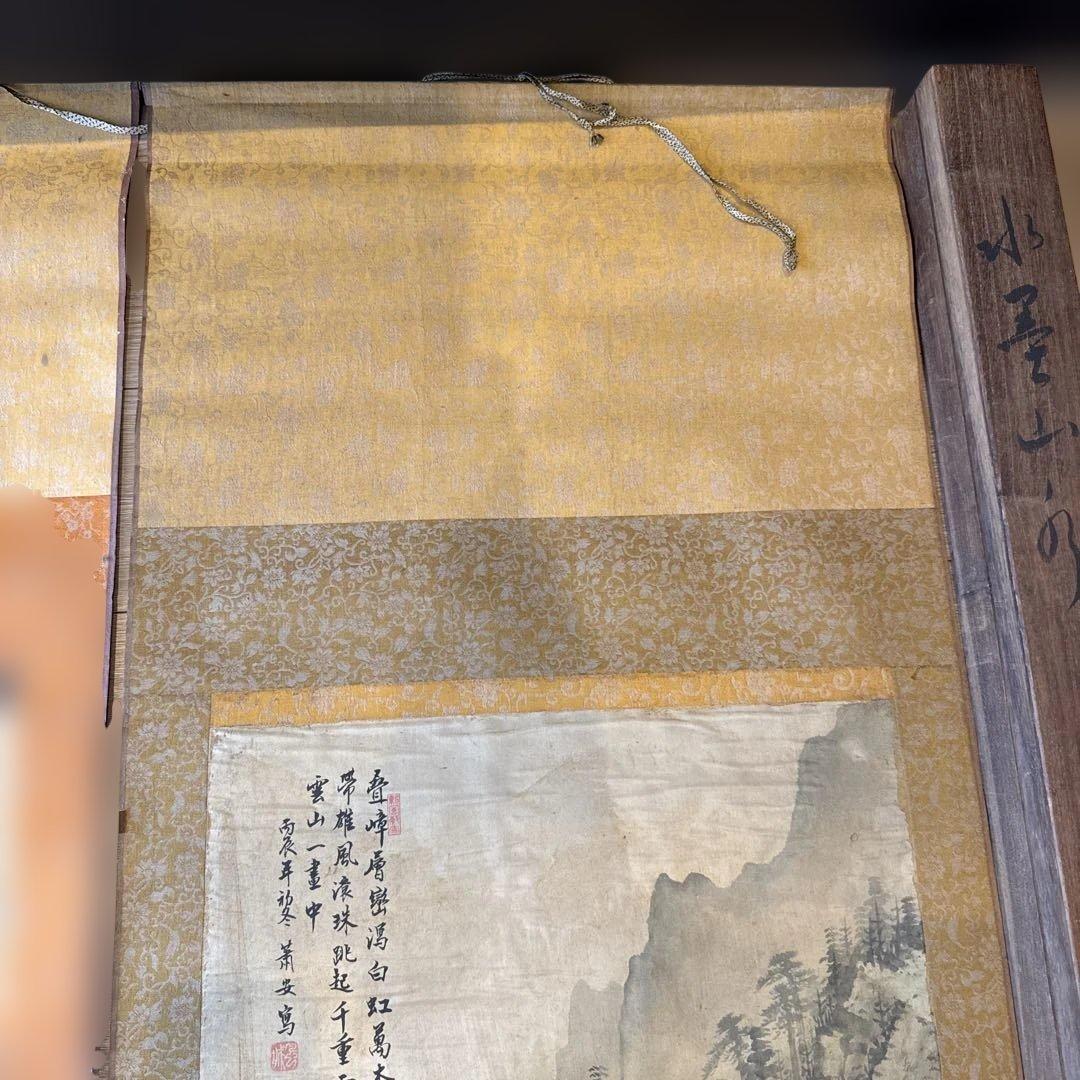 水墨山水
叠嶂層巒瀉白虹萬木
帶雄風濠珠跳起千重
雲山一畫中
丙辰年初冬 蕭安寫